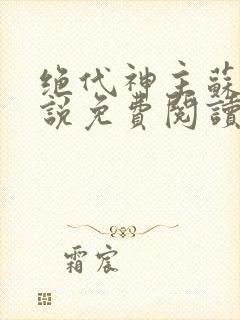 绝代神主蘇
說免費閱讀
霜宸